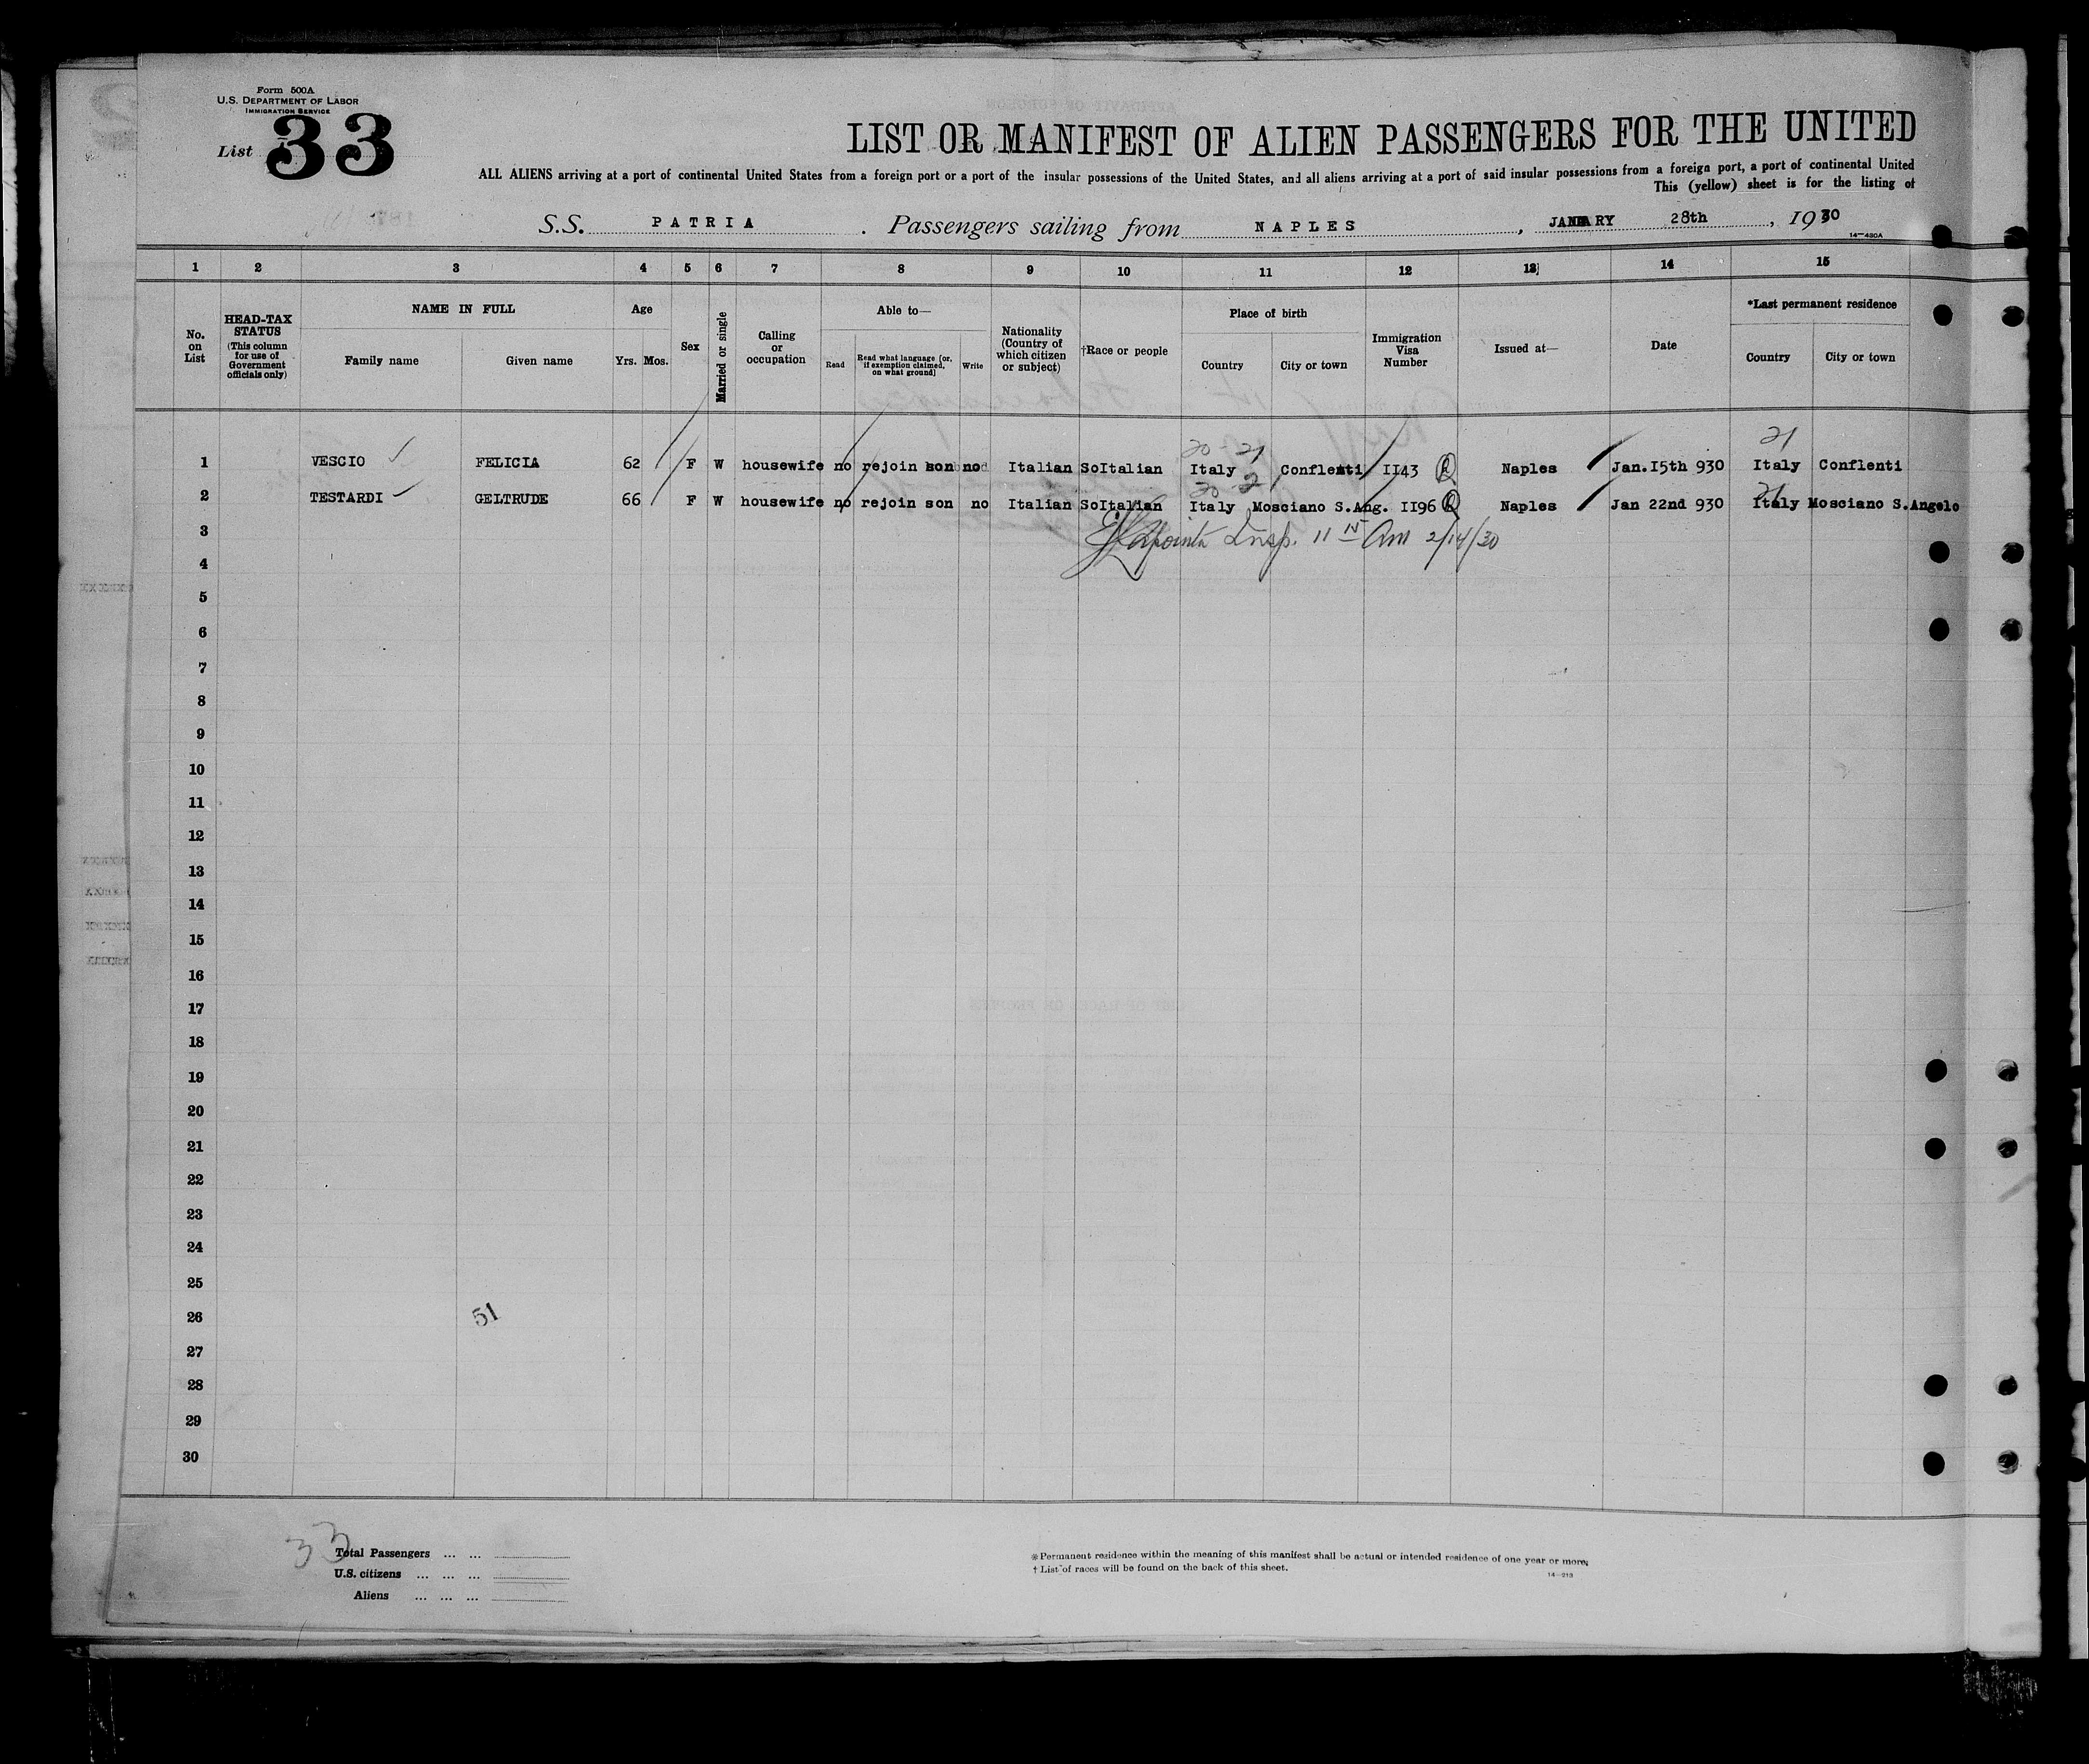 Form 500A
U.S. DEPARTMENT OF LABOR
IMMIGRATION SERVICE
List 33
LIST OR MANIFEST OF ALIEN PASSENGERS FOR THE UNITED
ALL ALIENS arriving at a port of continental United States from a foreign port or a port of the insular possessions of the United States, and all aliens arriving at a port of said insular possessions from a foreign port, a port of continental United
This (yellow) sheet is for the listing of
S.S. PATRIA . Passengers sailing from NAPLES , JANUARY 28th , 1930
14-430A
1 2 3 4 5 6 7 8 9 10 11 12 13 14 15
No. on List
HEAD-TAX STATUS (This column for use of Government officials only)
NAME IN FULL
Family name Given name
Age
Yrs. Mos.
Sex
Married or single
Calling or occupation
Able to—
Read
Read what language [or, if exemption claimed, on what ground]
Write
Nationality (Country of which citizen or subject)
†Race or people
Place of birth
Country City or town
Immigration Visa Number
Issued at—
Date
*Last permanent residence
Country City or town
20-21 21
1 VESCIO FELICIA 62 F W housewife no rejoin son no Italian SoItalian Italy Conflenti II43 R Naples Jan.I5th 930 Italy Conflenti
2 TESTARDI GELTRUDE 66 F W housewife no rejoin son no Italian SoItalian Italy Mosciano S.Ang. II96 R Naples Jan 22nd 930 Italy Mosciano S.Angelo
3 Insp. 11 15 Am 2/14/30
4
5
6
7
8
9
10
11
12
13
14
15
16
17
18
19
20
21
22
23
24
25
26 51
27
28
29
30
33
Total Passengers ... ...
U.S. citizens ... ... ...
Aliens ... ... ...
*Permanent residence within the meaning of this manifest shall be actual or intended residence of one year or more.
† List of races will be found on the back of this sheet.
14-213